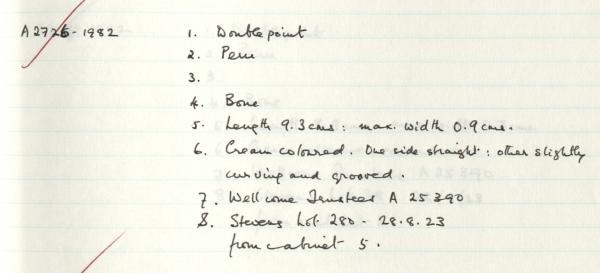 A2726-1982 1. Double point
2. Peru
3.
4. Bone
5. Length 9.3cms : max. width 0.9cms.
6. Cream coloured. One side straight : other slightly
curving and grooved.
7. Wellcome Trustees A 25390
8. Stevens Lot 280 - 28.8.23
from cabinet 5.